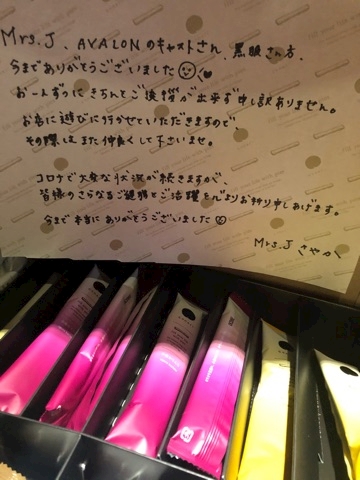 Mrs.J、AVALONのキャストさん、黒服さん方、
今までありがとうございました
お一人ずつにきちんとご挨拶が出来ず申し訳ありません。
お店に遊びに行かせていただきますので、
その際はまた仲良くして下さいませ。
コロナで大変な状況が続きますが、
皆様のさらなるご健勝とご活躍を心よりお祈り申し上げます。
今まで本当にありがとうございました
Mrs.J さやか